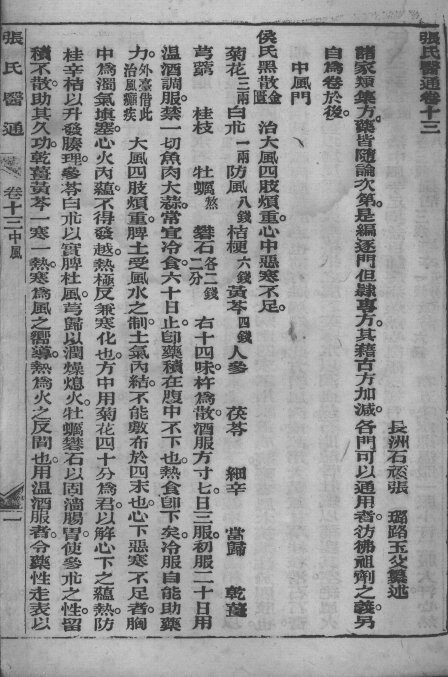 張氏醫通卷十三
長洲石頑張 璐路玉父纂述
諸家類集方藥皆隨論次第是編逐門但隸專方其藉古方加減各門可以通用者彷彿祖劑之義另
自為卷於後
中風門
侯氏黑散金匱 治大風四肢煩重心中惡寒不足
菊花三兩白朮一兩防風八錢桔梗六錢黃芩四錢人參 茯苓 細辛 當歸 乾薑
芎藭 桂枝 牡蠣煞礬石各二錢二分 右十四味杵為散酒服方寸七日三服初服二十日用
溫酒調服禁一切魚肉大蒜常宜冷食六十日止即藥積在腹中不下也熱食即下矣冷服自能助藥
力外臺借此治風癲疾 大風四肢煩重脾土受風水之制土氣內結不能敷布於四末也心下惡寒不足者胸
中為濁氣填塞心火內蘊不得發越熱極反兼寒化也方中用菊花四十分為君以解心下之蘊熱防
桂辛桔以升發腠理參苓白朮以實脾杜風芎歸以潤燥熄火牡蠣礬石以固濇腸胃使參朮之性留
積不散助其久功乾薑黃芩一寒一熱寒為風之嚮導熱為火之反間也用溫酒服者令藥性走表以
張氏醫通 卷十三 中風 一